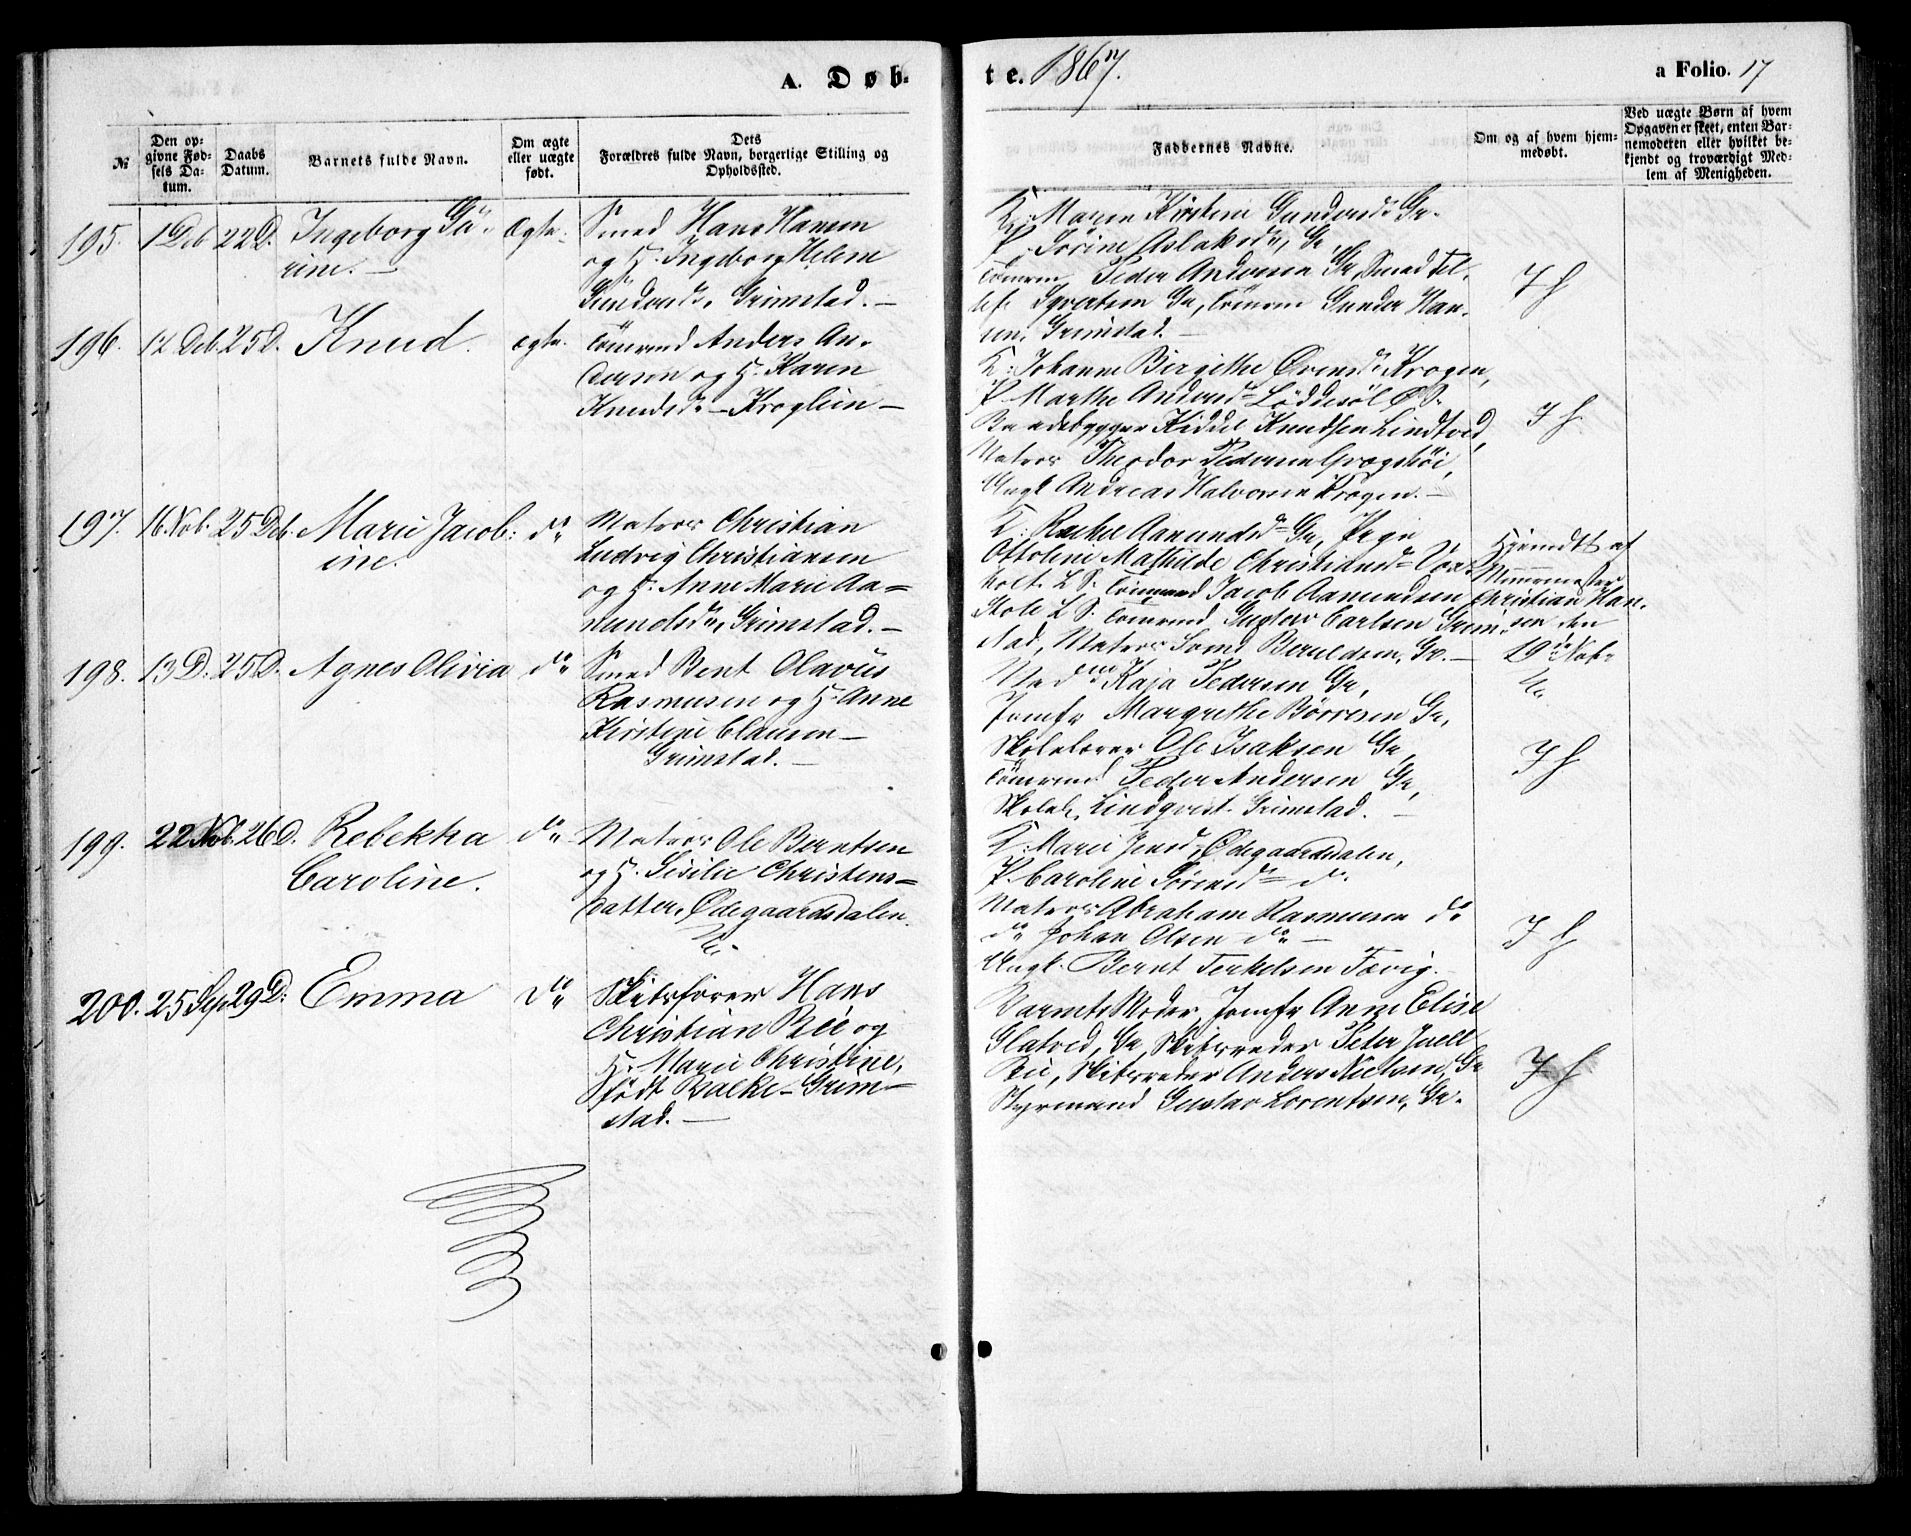 A. Døb-
te. 1867.
a Folio. 17
№
Den opgivne Fødsels Datum.
Daabs Datum.
Barnets fulde Navn.
Om ægte eller uægte født.
Dets Forældres fulde Navn, borgerlige Stilling og Opholdssted.
Faddernes Navne.
Om og af hvem hjemmedøbt.
Ved uægte Børn af hvem Opgaven er skeet, enten Barnemoderen eller hvilket bekjendt og troværdigt Medlem af Menigheden.
195. 1 Deb 22 D. Ingeborg Gu- ægte. Smed Hans Hansen
rine. — og H. Ingeborg Helene
Gundersdr. Grimstad. —
K. Maren Kirstine Gundersdr Gr.
P. Sørine Aslaksdr, Gr.
Tømrm. Peder Andersen Gr, Smed
Syvertsen Gr, Tømrm Gunder Han-
sen, Grimstad. —
I H
196. 12 Deb. 25 D. Knud. ægte. Tømrmd Anders An-
dersen og H. Karen
Knudsdr — Kroglien —
K: Johanne Birgithe Evensdr Krogen,
P. Marthe Andersdr Løddesøl Ø S.
Baadebygger Kiddel Knudsen Lindtved,
Matros Theodor Pedersen
Ungk Andreas Halvorsen Krogen. —
I H
197. 16 Nob. 25 Deb. Marie Jacob: do Matros Christian
ine. Ludvig Christiansen
og H. Anne Marie Aa=
nundsdr, Grimstad. —
K: Rachel Aanundsdr Gr, Pige
Ottoline Mathilde Christiansdr Vox-
holt. L S. Tømrmd Jacob Aanundsen
Stole L S. Tømrmd Gustav Carlsen Grim-
stad, Matros Bereldsen, Gr. —
Hjemdt af
Murmester
Christian Han-
sen den
19de Nob.
198. 13 D. 25 D. Agnes Olivia do Smed Bent Olavus
Rasmussen og H. Anne
Kirstine Clausen —
Grimstad. —
Mad. Kaja Pedersen Gr,
Jomfr Margrethe Børresen Gr,
Skolelærer Ole Isaksen Gr,
Tømrmd Peder Andersen Gr,
Skolel. Lindqvist. Grimstad. —
I H
199. 22 Nob. 26 D. Rebekka do Matros Ole Berntsen
Caroline. og H. Sisilie Christens=
datter, Ødegaardsdalen.
K: Marie Jensdr Ødegaardsdalen,
P. Caroline Sørensdr do.
Matros Abraham Rasmussen do
do Johan Olsen do —
Ungk. Bernt Terkelsen Fævig.
I H
200. 25 Sep 29 D: Emma do Skibsfører Hans
Christian Bie og
H. Marie Christine,
født Balke — Grim-
stad. —
Barnets Moder, Jomfr Anne Elise
Glatved, Gr, Skibsreder Peter Juell
Bie, Skibsreder Anders Nielsen, Gr
Styrmand Gustav Lorentsen, Gr.
I H